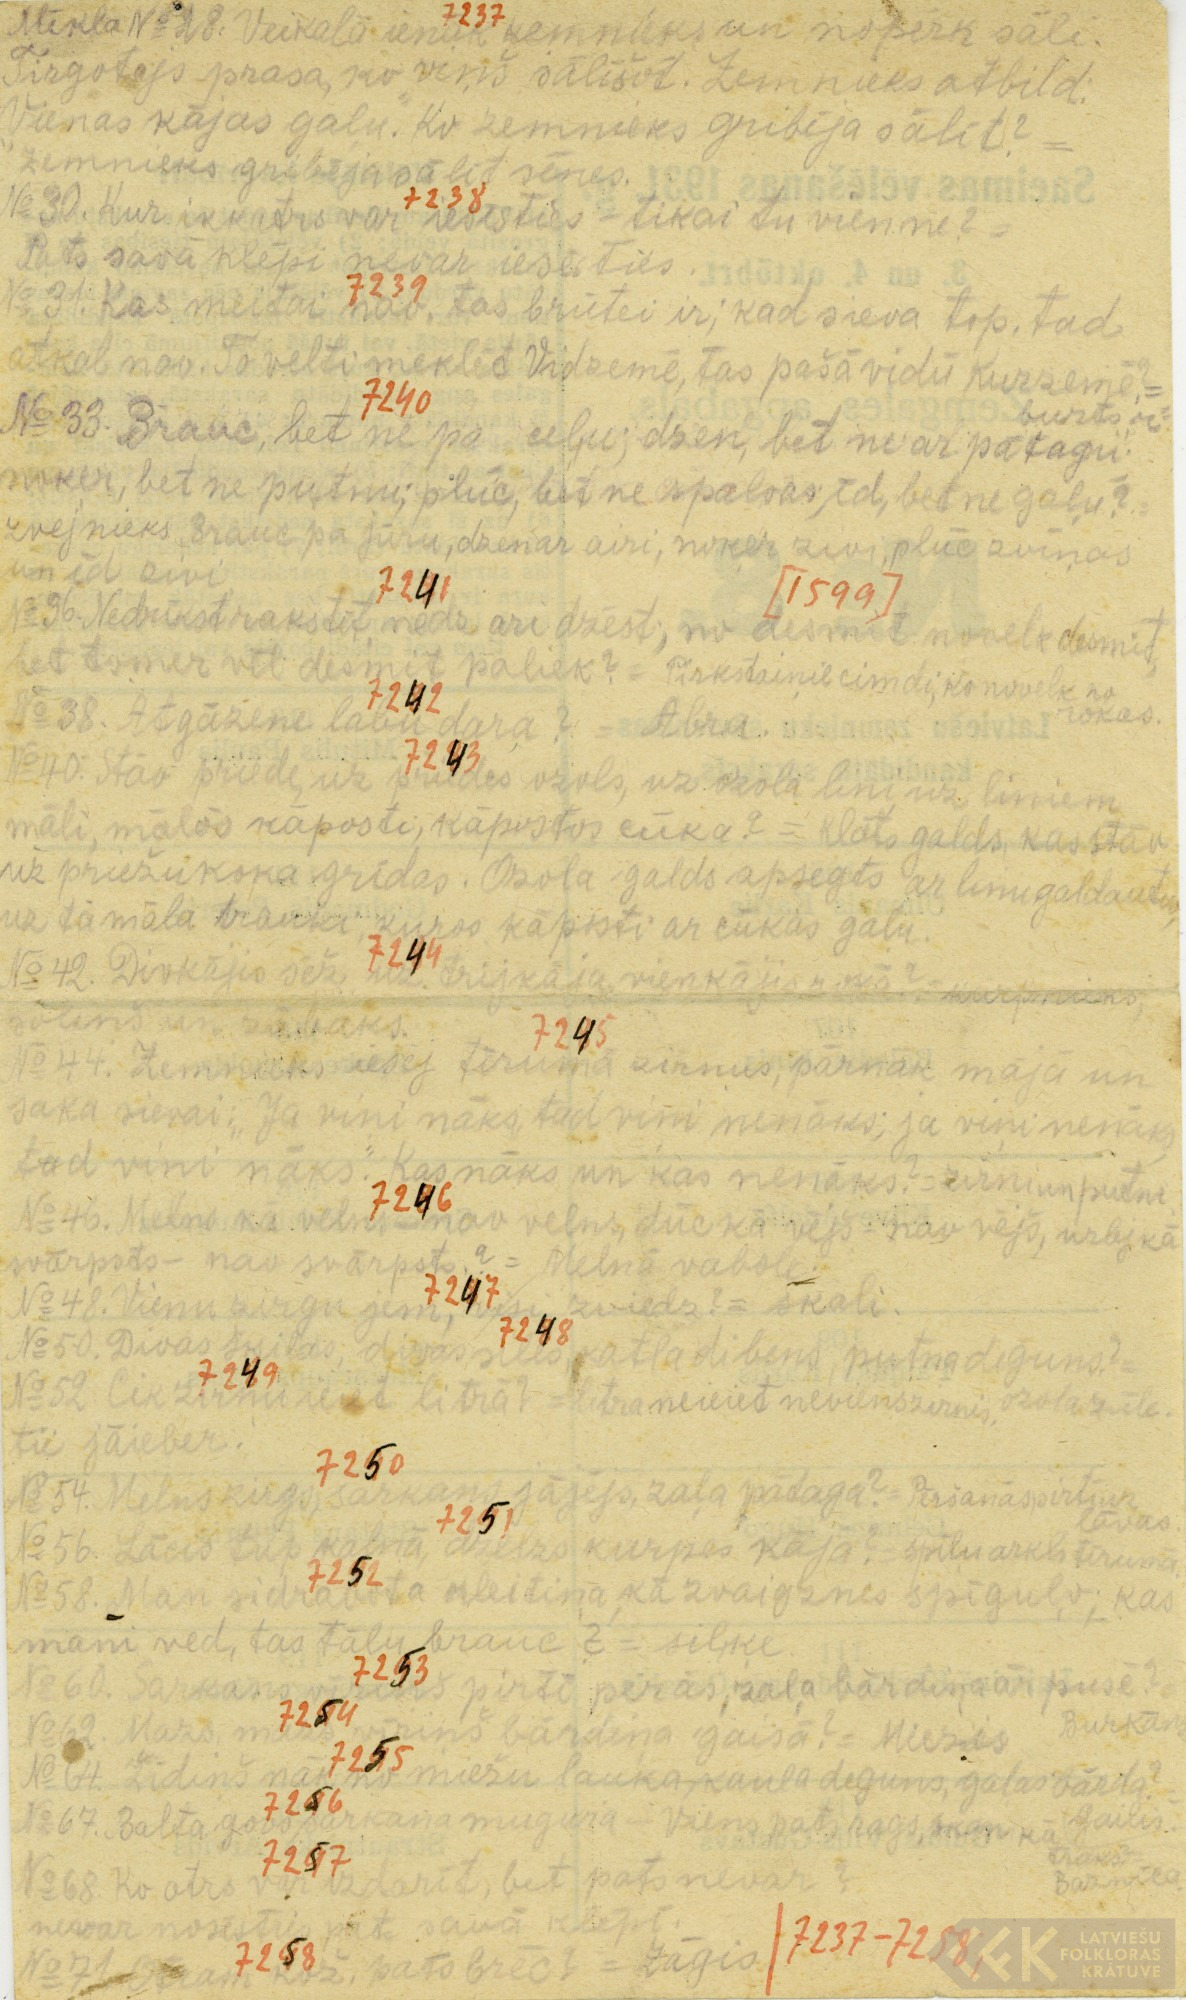 Mīkla № 28. Veikalā ienāk zemnieks un nopērk sāli.
7237
Tirgotājs prasa, ko viņš sālīšot. Zemnieks atbild:
"Vienas kājas gaļu." Ko zemnieks gribēja sālīt? =
Zemnieks gribēja sālīt sēnes.
7238
№ 30. Kur ikkatrs var iesēsties – tikai tu vien ne? =
Pats savā klēpī nevar iesēsties.
7239
№ 31. Kas meitai nav, tas brūtei ir; kad sieva top, tad
atkal nav. To velti meklēt Vidzemē, tas pašā vidū Kurzemē? =
burts "r"
7240
№ 33. Brauc, bet ne pa ceļu; dzen, bet ne ar pātagu;
noķer, bet ne putnu; plūc, bet ne spalvas; ēd, bet ne gaļu? =
Zvejnieks brauc pa jūru, dzen ar airi, noķer zivi, plūc zvīņas
un ēd zivi
7241 [1599]
№ 36. Nedrīkst rakstīt, nedz arī dzēst; no desmit novelk desmit,
bet tomēr vēl desmit paliek? = Pirkstainie cimdi, ko novelk no
rokas.
7242
№ 38. Atgāzene labu dara? = Abra.
7243
№ 40. Stāv priede, uz priedes ozols, uz ozola lini, uz liniem
māli, mālos kāposti, kāpostos cūka? = Klāts galds, kas stāv
uz priežu koka grīdas. Ozola galds apsegts ar linu galdautu,
uz tā māla trauki, kuros kāposti ar cūkas gaļu.
7244
№ 42. Divkājis sēž uz trijkāja, vienkājis rokā? = Kurpnieks,
soliņš un zābaks.
7245
№ 44. Zemnieks iesēj tīrumā zirņus, pārnāk mājā un
saka sievai: "Ja viņi nāks, tad viņi nenāks; ja viņi nenāks,
tad viņi nāks". Kas nāks un kas nenāks? = Zirņi un putni.
7246
№ 46. Melns kā velns – nav velns, dūc kā vējš – nav vējš, urbj kā
svārpsts – nav svārpsts? = Melnā vabole.
7247
№ 48. Vienu zirgu jem, visi zviedz? = skali.
7248
№ 50. Divas katla dibens, putna deguns?
ozola zīle.
7249
№ 52 Cik zirņu ieiet litrā? = Litrā neieiet neviens zirnis,
tie jāieber.
7250
№ 54. Melns zirgs, sarkans jājējs, zaļa pātaga? = Pēršanās pirtī uz
lāvas.
7251
№ 56. Lācis tup kalnā, dzelzs kurpes kājā? = spīļu arkls tīrumā.
7252
№ 58. Man sidrabota kleitiņa, kā zvaigznes spīguļo; kas
mani ved, tas tālu brauc? = siļķe
7253
№ 60. Sarkans vīriņš pirtī peras, zaļa bārdiņa ārpusē?
Burkāns
7254
№ 62. Mazs, mazs vīriņš bārdiņa gaisā? = Miezis
7255
№ 64. Žīdiņš nāk no miežu lauka, kaula deguns, gaļas bārda? =
Gailis.
7256
№ 67. Balta govs, sarkana mugura – Viens pats rags, kā
traks –
Baznīca.
7257
№ 68. Ko otrs var izdarīt, bet pats nevar?
nevar nosēsties pat savā klēpī.
7258
№ 71. kož, pats brēc? = Zāģis
7237–7258
LATVIEŠU
FOLKLORAS
KRĀTUVE